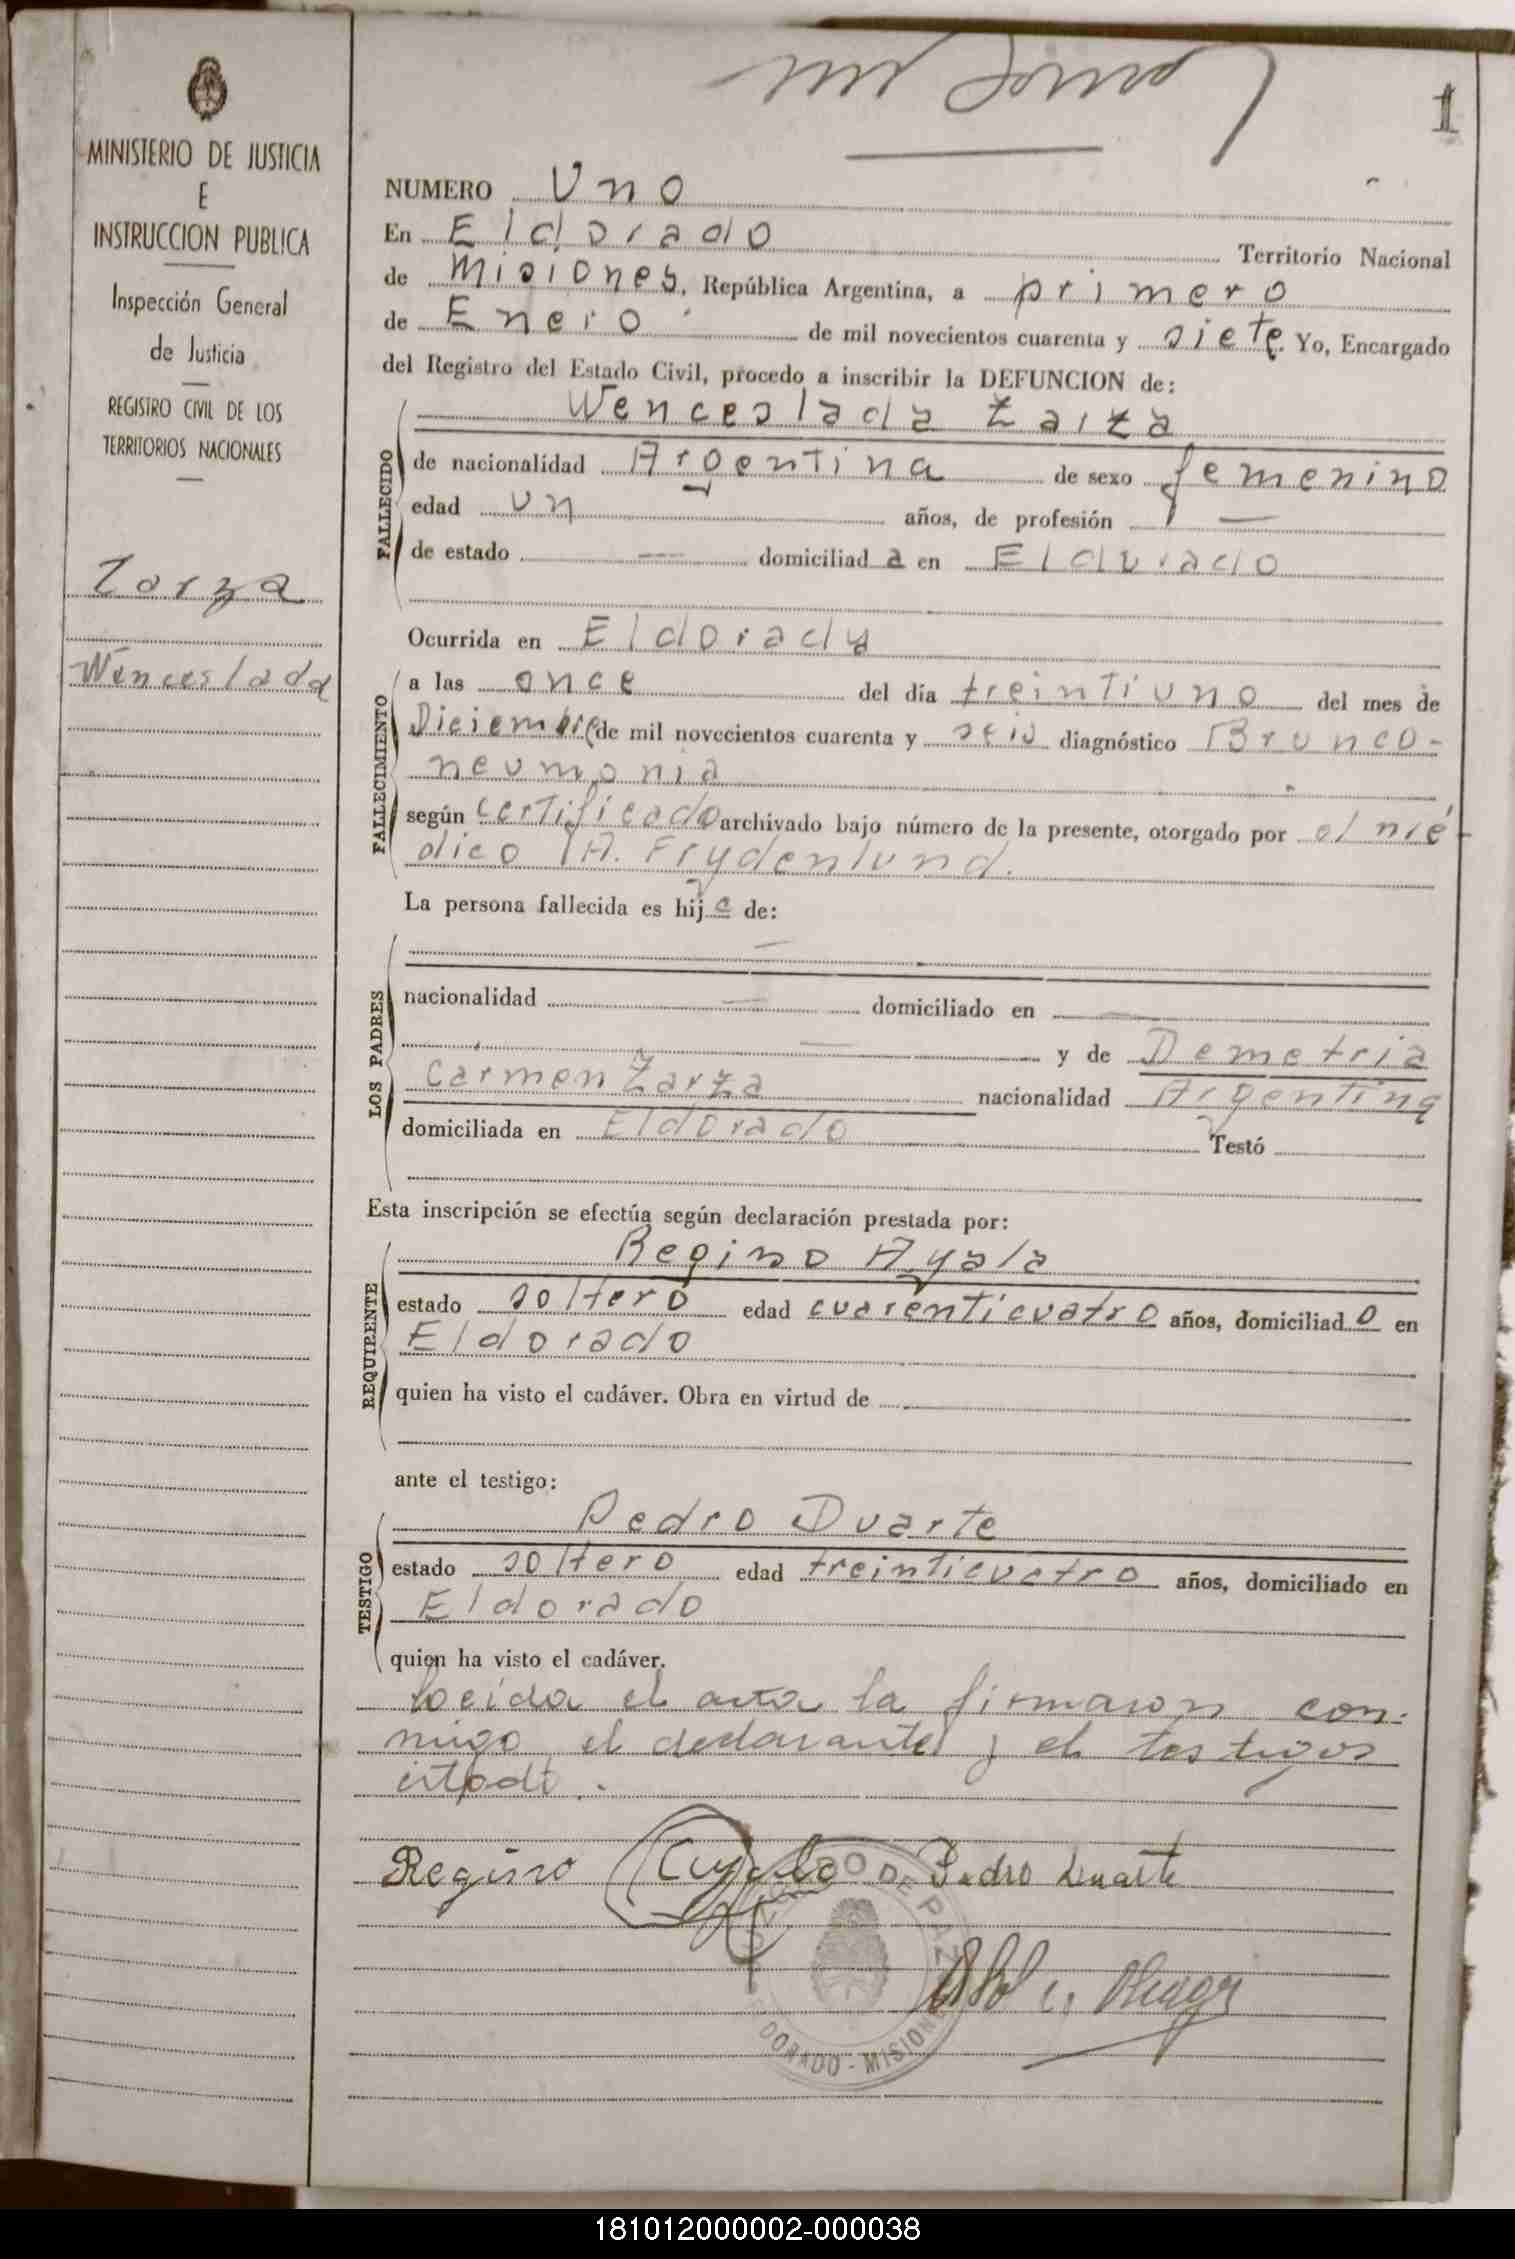 1
MINISTERIO DE JUSTICIA
E
INSTRUCCION PUBLICA
Inspección General
de Justicia
REGISTRO CIVIL DE LOS
TERRITORIOS NACIONALES
Zarza
Wenceslada
NUMERO Uno
En Eldorado Territorio Nacional
de Misiones, República Argentina, a primero
de Enero de mil novecientos cuarenta y siete. Yo, Encargado
del Registro del Estado Civil, procedo a inscribir la DEFUNCION de:
Wenceslada Zarza
FALLECIDO
de nacionalidad Argentina de sexo femenino
edad un años, de profesión —
de estado — domiciliada en Eldorado
Ocurrida en Eldorado
FALLECIMIENTO
a las once del día treintiuno del mes de
Diciembre de mil novecientos cuarenta y seis diagnóstico Bronco-
neumonia
según certificado archivado bajo número de la presente, otorgado por el mé-
dico A. Frydenlund.
La persona fallecida es hija de:
LOS PADRES
—
nacionalidad — domiciliado en —
— y de Demetria
Carmen Zarza nacionalidad Argentina
domiciliada en Eldorado Testó
Esta inscripción se efectúa según declaración prestada por:
REQUIRENTE
Regino Ayala
estado soltero edad cuarenticuatro años, domiciliado en
Eldorado
quien ha visto el cadáver. Obra en virtud de
ante el testigo:
TESTIGO
Pedro Duarte
estado soltero edad treinticuatro años, domiciliado en
Eldorado
quien ha visto el cadáver.
Leida el acta la firmaron con-
migo, el declarante y el testigos
citado.
Regino Ayala Pedro Duarte
JUZGADO DE PAZ
ELDORADO - MISIONES
181012000002-000038